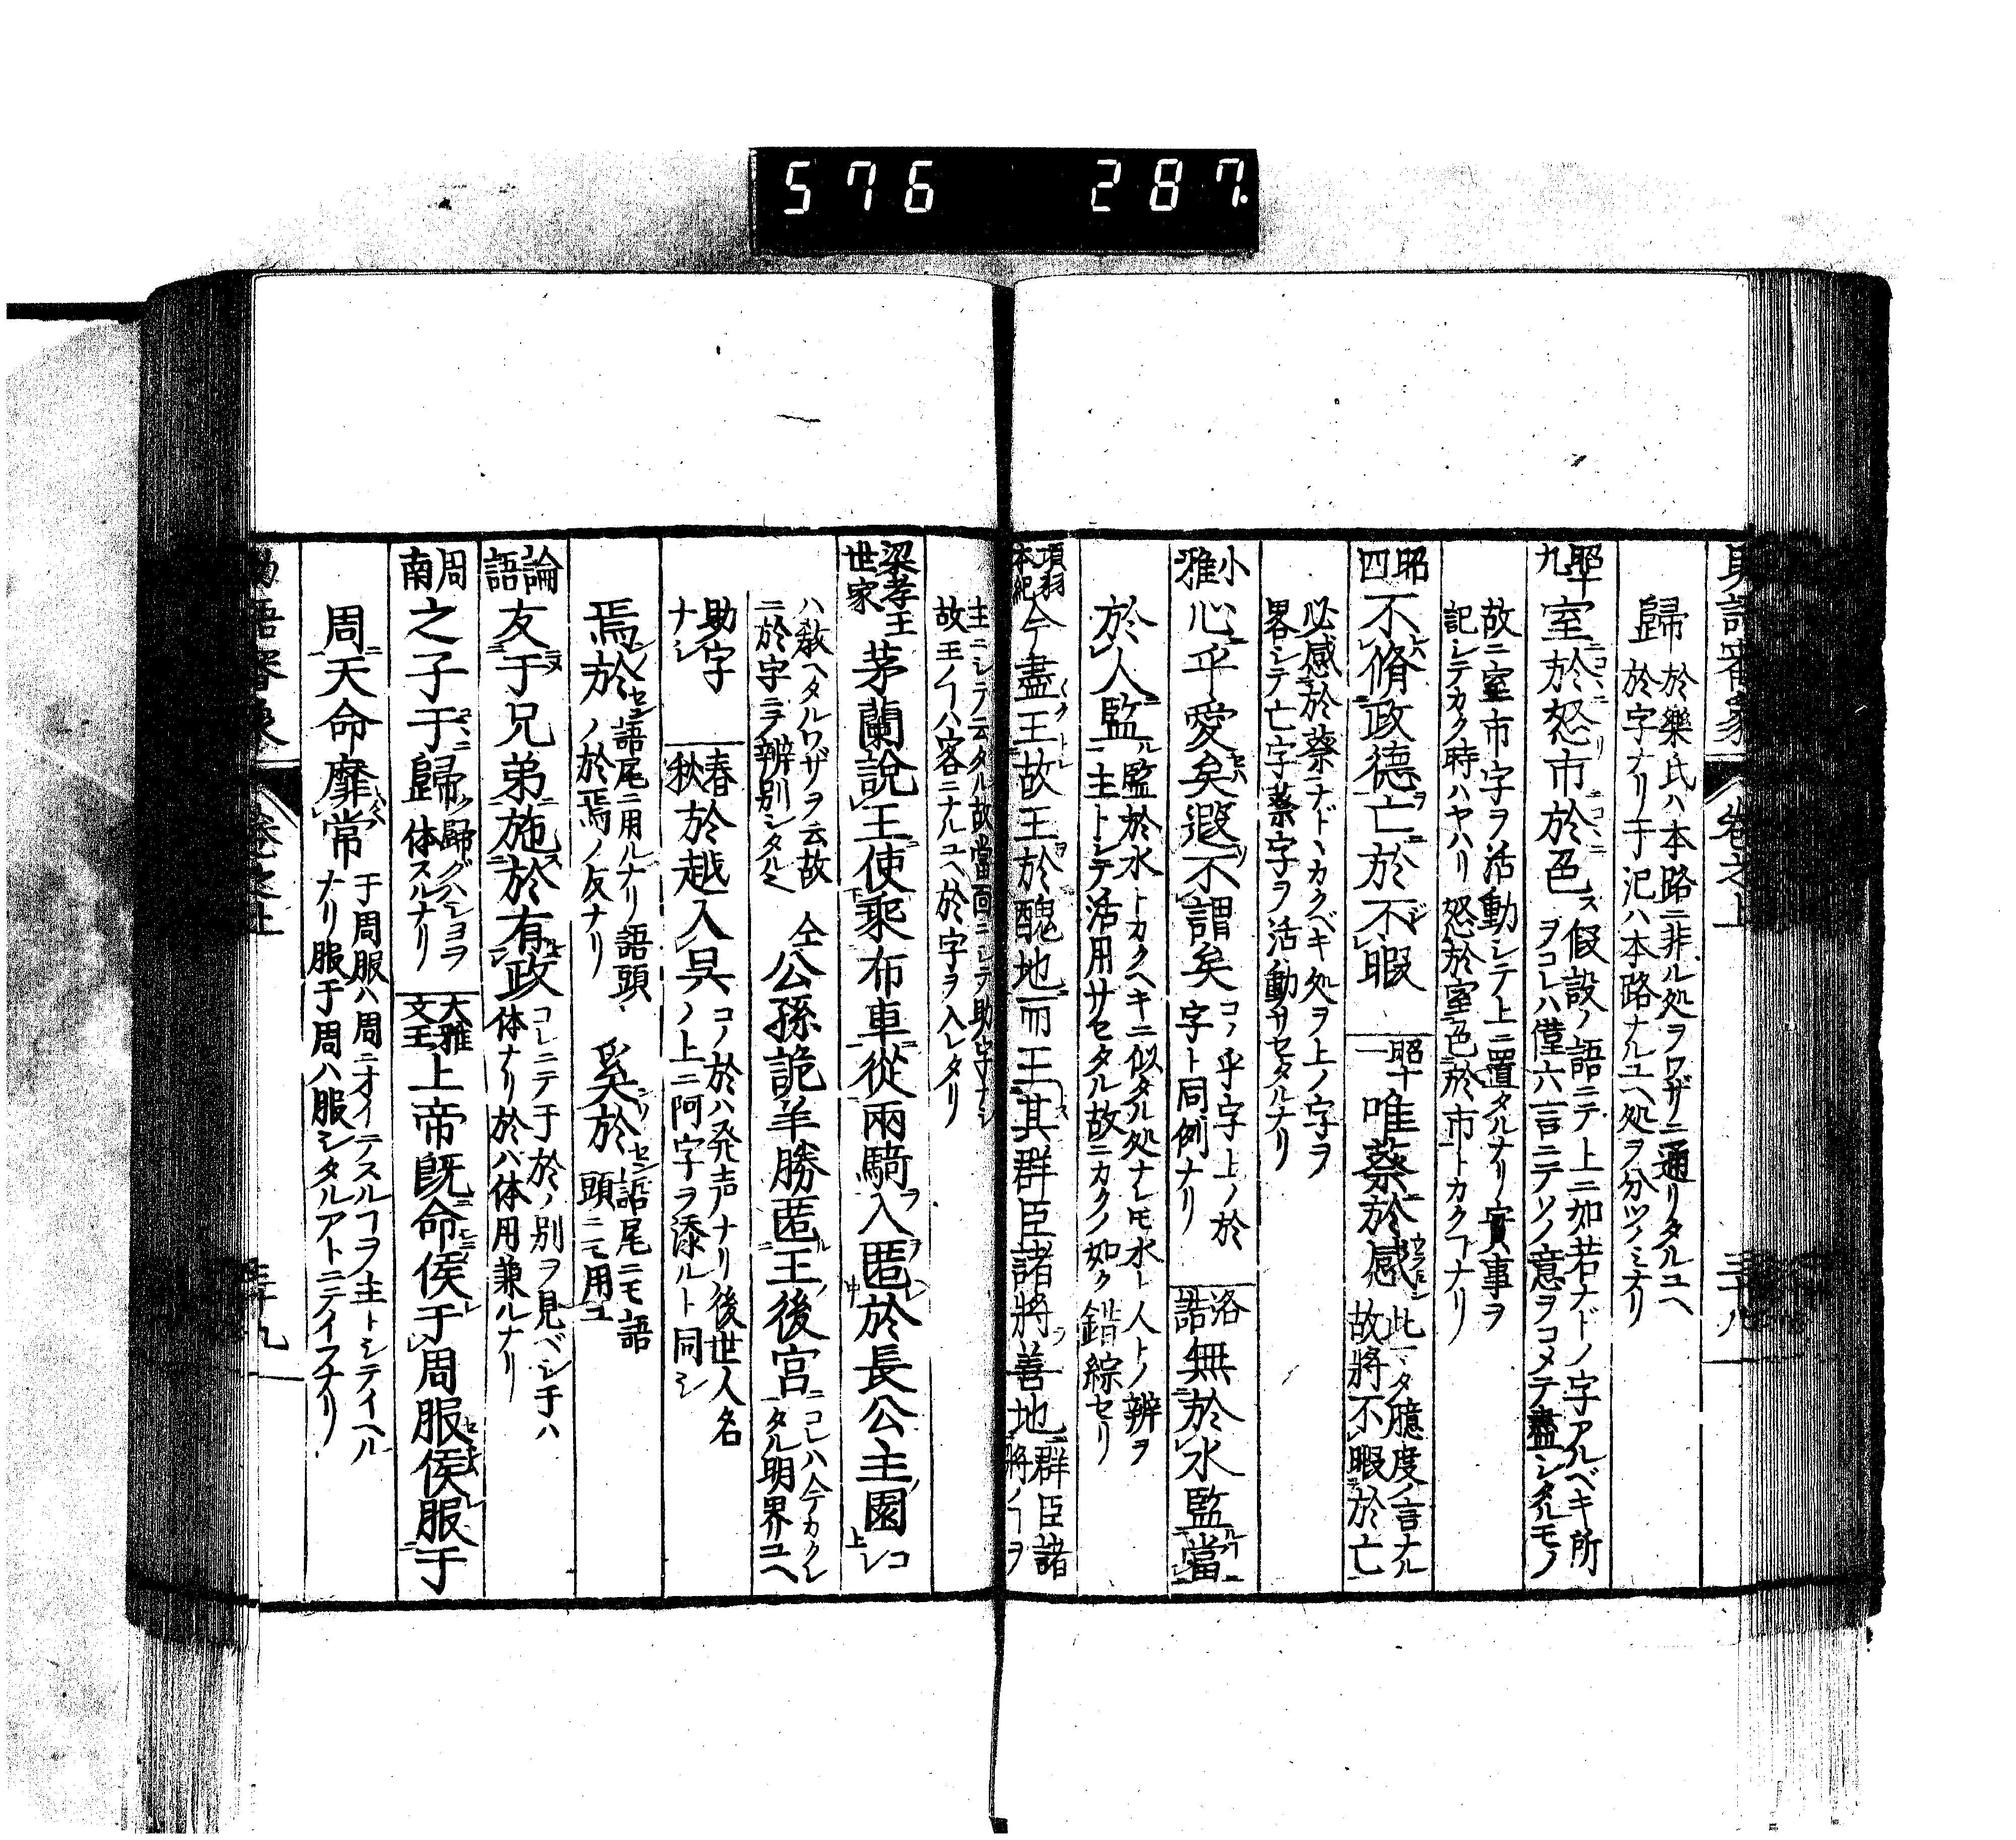 576 287.
卷之上
歸
於樂氏ハ本路ニ非ル処ヲワザニ通リタルユヘ
於字ナリ于汜ハ本路ナルユヘ処ヲ分ツノミナリ
昭十九
室於怒市於色
ス假設ノ語ニテ上ニ如若ナドノ字アルベキ所
ヲコレハ僅六言ニテソノ意ヲコメテ盡シタルモノ
故ニ室市字ヲ活動シテ上ニ置タルナリ實事ヲ
記シテカク時ハヤハリ怒於室色於市トカクヿナリ
昭四
不脩政德亡於不暇
昭十一
唯蔡於感
此一タ臆度ノ言ナル
故將不暇於亡
必感於蔡ニナドヽカクベキ処ヲ上ノ字ヲ
畧シテ亡字蔡字ヲ活動サセタルナリ
小雅
心乎愛矣遐不謂矣
コノ乎字上ノ於
字ト同例ナリ
洛誥
無於水監當
於人監
監於水トカクヘキニ似タル処ナレモ水ト人トノ辨ヲ
主トシテ活用サセタル故ニカクノ如ク錯綜セリ
項羽本紀
今盡王故王於醜地而王其群臣諸將善地
群臣諸
將ノヿヲ
主ニシテ云タル故當面ニシテ助字ナシ
故王ノヿハ客ニナルユヘ於字ヲ入レタリ
梁孝王世家
茅蘭說王使乘布車從兩騎入匿於長公主園
コレ
ハ敎ヘタルワザヲ云故
ニ於字ニテ辨別シタル
仝
公孫詭羊勝匿王後宮
コレハ今テカクレ
タル明界ユヘ
助字
ナシ
春秋
於越入呉
コノ於ハ発声ナリ後世人名
ノ上ニ阿字ヲ添ルト同シ
焉於
語尾ニ用ルナリ語頭
ノ於焉ノ反ナリ
奚於
語尾ニモ語
頭ニモ用ユ
論語
友于兄弟施於有政
コレニテ于於ノ別ヲ見ベシ于ハ
体ナリ於ハ体用兼ルナリ
周南
之子于歸
歸グハショヲ
体スルナリ
大雅文王
上帝既命侯于周服侯服于
周天命靡常
于周服ハ周ニオイテスルヿヲ主トシテイヘル
ナリ服于周ハ服シタルアトニテイフナリ